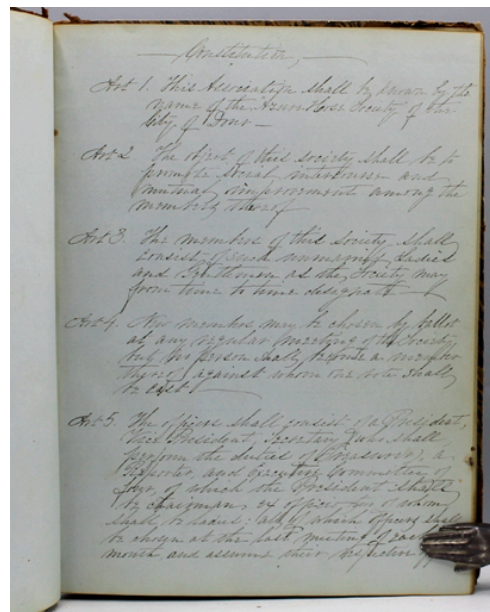 Constitution,
Art 1. This Association shall be known by the
name of the Azure Hose Society of the
City of Dour—
Art 2 The object of this society shall be to
promote social intercourse and
mutual improvement among the
members thereof
Art 3. The members of this society shall
consist of such unmarried Ladies
and Gentlemen as the Society may
from time to time designate—
Art 4. New members may be chosen by ballot
at any regular meeting of the Society,
but no person shall become a member
thereof against whom one vote shall
be cast
Art 5. The officers shall consist of a President,
Vice President, Secretary (who shall
perform the duties of Treasurer), a
Reporter, and Executive Committee of
four, of which the President shall
be chairman ex officio two of whom
shall be ladies: all of which officers shall
be chosen at the last meeting of each
month, and assume their respective